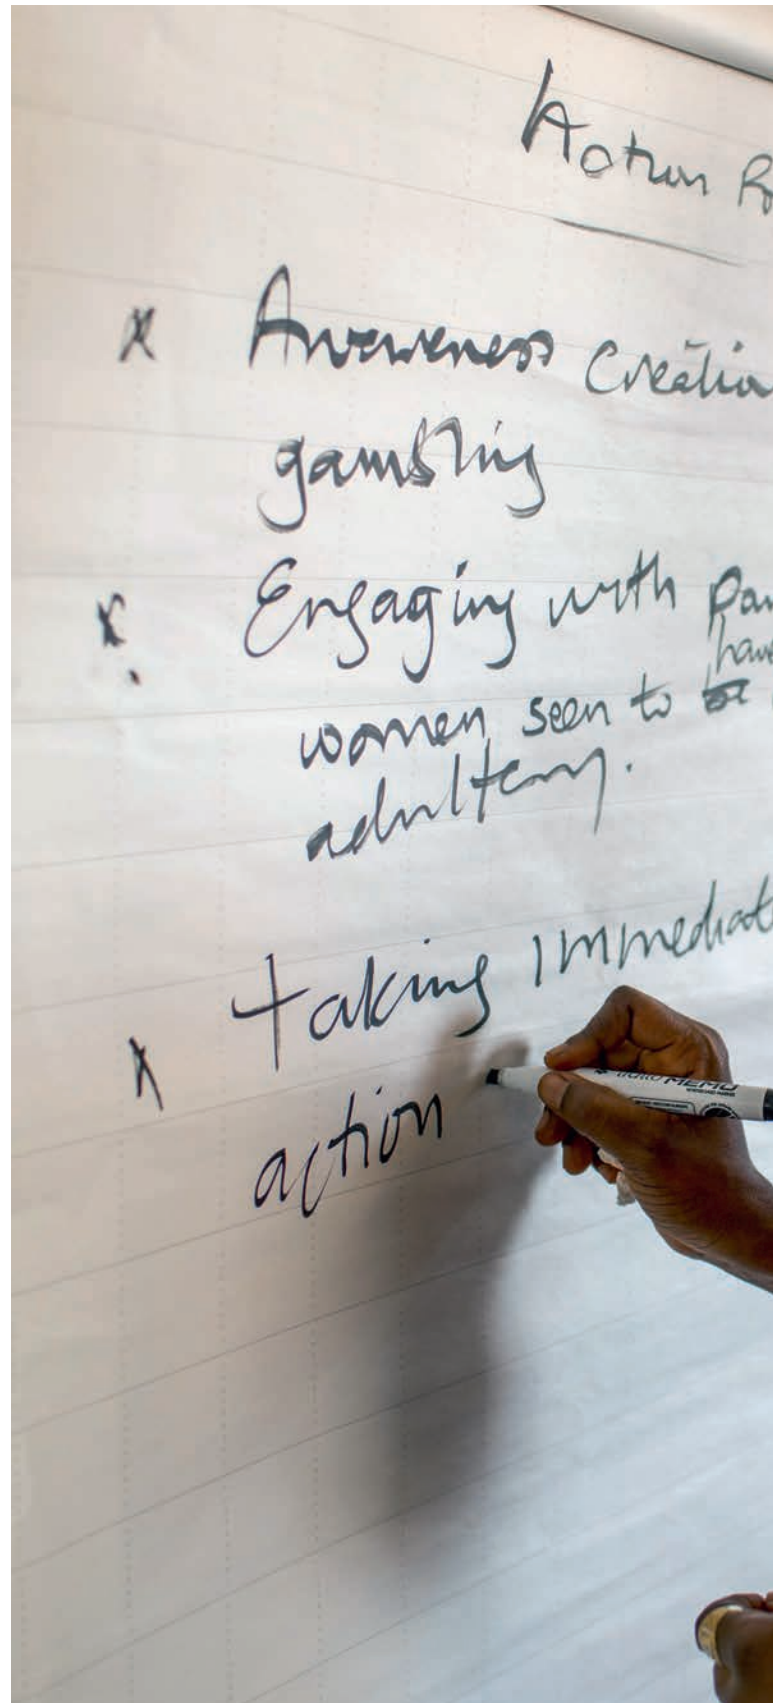 Action
Awareness Creatio
gambling
Engaging with par
have
women seen to
adultery.
taking immediat
action
MEMO